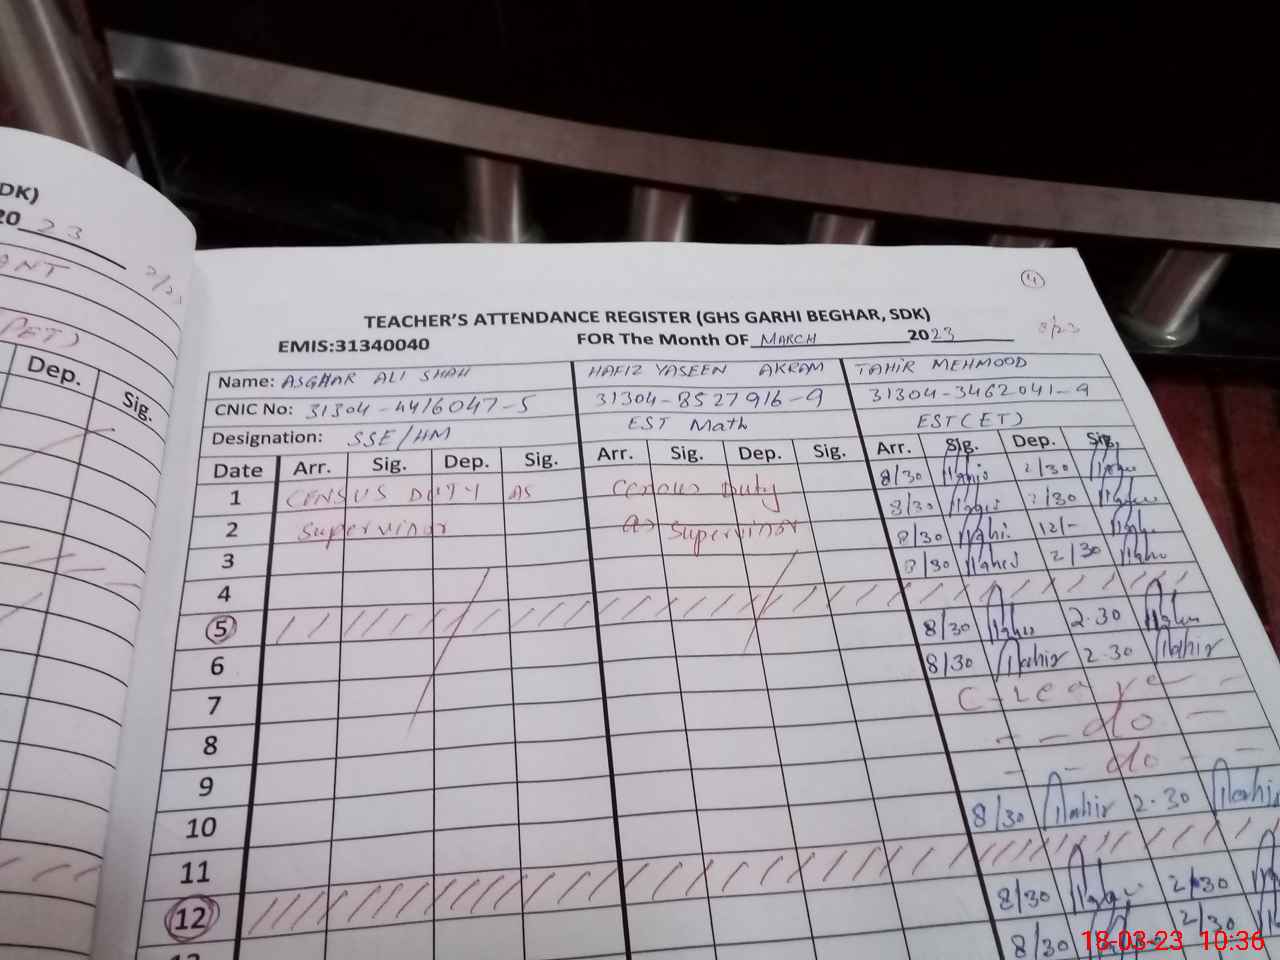 DK)
20 23
ANT
2/23
(PET)
Dep.
Sig.
4
TEACHER'S ATTENDANCE REGISTER (GHS GARHI BEGHAR, SDK)
EMIS:31340040 FOR The Month OF MARCH 2023
Name: ASGHAR ALI SHAH HAFIZ YASEEN AKRAM TAHIR MEHMOOD
CNIC No: 31304-4416047-5 31304-8527916-9 31304-3462041-9
Designation: SSE/HM EST Math EST(ET)
Date Arr. Sig. Dep. Sig. Arr. Sig. Dep. Sig. Arr. Sig. Dep. Sig.
1 CENSUS DUTY AS Census Duty 8/30 2/30
2 Supervisor as Supervisor 8/30 2/30
3 8/30 12/-
4 8/30 2/30
5
6 8/30 2.30
7 8/30 Tahir 2.30 Tahir
8 C-Leave - -
9 - - do -
10 - - do -
11 8/30 Tahir 2.30 Tahir
12
13 8/30 2/30
8/30 2/30
18-03-23 10:36